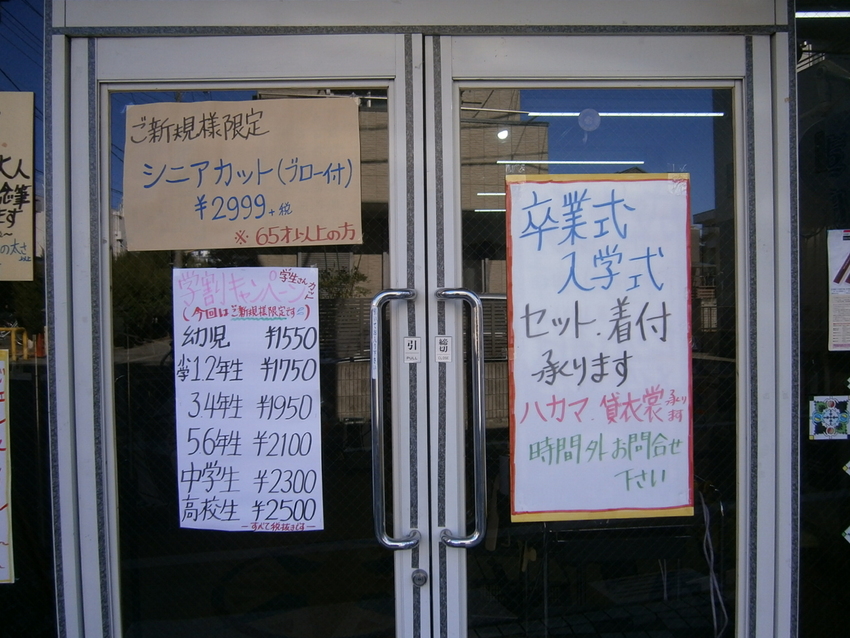 ご新規様限定
シニアカット(ブロー付)
¥2999+税
※65才以上の方
学割キャンペーン
学生さんカット
(今回はご新規様限定です)
幼児 ¥1550
小学1.2年生 ¥1750
3 4年生 ¥1950
5 6年生 ¥2100
中学生 ¥2300
高校生 ¥2500
ーすべて税抜きですー
引
PULL
締切
卒業式
入学式
セット.着付
承ります
ハカマ.貸衣裳承ります
時間外お問合せ
下さい
大人
ます
の太さ